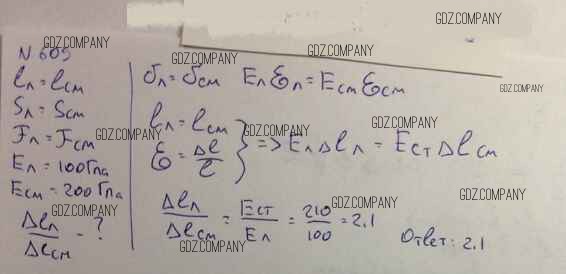 N 609
lл = lсм
Sл = Sсм
Fл = Fсм
Eл = 100 Гпа
Eсм = 200 Гпа
Δlл / Δlсм = ?
σл = σсм Eл Ɛл = Eсм Ɛсм
lл = lсм
Ɛ = Δl / l } => Eл Δlл = Eст Δlсм
Δlл / Δlсм = Eст / Eл = 210 / 100 = 2,1
Ответ: 2,1
GDZ.COMPANY
GDZ.COMPANY
GDZ.COMPANY
GDZ.COMPANY
GDZ.COMPANY
GDZ.COMPANY
GDZ.COMPANY
GDZ.COMPANY
GDZ.COMPANY
GDZ.COMPANY
GDZ.COMPANY
GDZ.COMPANY